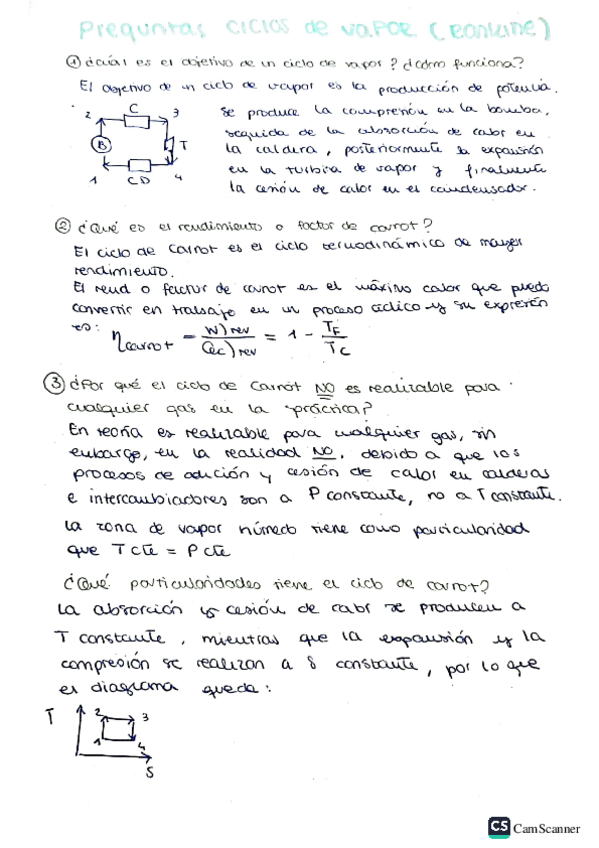 Preguntas ciclos de vapor (Rankine)
① ¿cuál es el objetivo de un ciclo de vapor? ¿cómo funciona?
El objetivo de un ciclo de vapor es la producción de potencia.
se produce la compresión en la bomba,
seguida de la absorción de calor en
la caldera, posteriormente la expansión
en la turbina de vapor y finalmente
la cesión de calor en el condensador.
2 C 3
B T
1 CD 4
② ¿Qué es el rendimiento o factor de carnot?
El ciclo de Carnot es el ciclo termodinámico de mayor
rendimiento.
El rend o factor de carnot es el máximo calor que puedo
convertir en trabajo en un proceso cíclico y su expresión
es:
ηcarnot = W)rev / Qc)rev = 1 - TF / TC
③ ¿Por qué el ciclo de Carnot NO es realizable para
cualquier gas en la práctica?
En teoría es realizable para cualquier gas, sin
embargo, en la realidad NO, debido a que los
procesos de adición y cesión de calor en calderas
e intercambiadores son a P constante, no a T constante.
La zona de vapor húmedo tiene como particularidad
que T cte = P cte
¿Qué particularidades tiene el ciclo de carnot?
La absorción y cesión de calor se producen a
T constante, mientras que la expansión y la
compresión se realizan a s constante, por lo que
el diagrama queda:
T 2 3
1 4
S
CS CamScanner